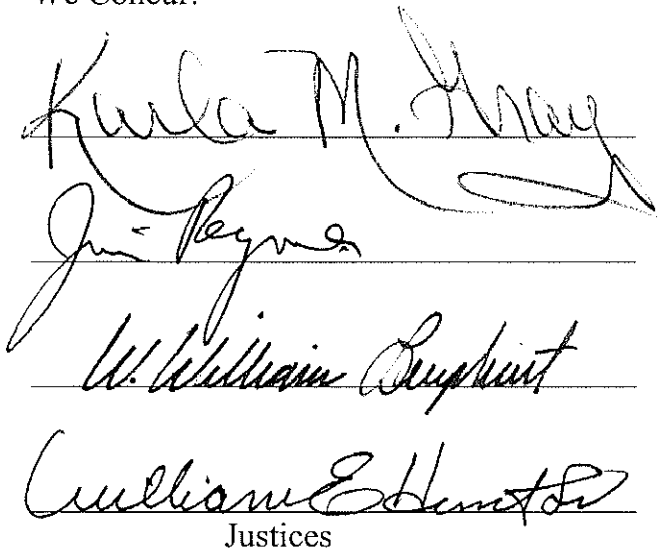 We Concur:
Karla M. Gray
Jim Regnier
W. William Leaphart
William E Hunt Sr
Justices